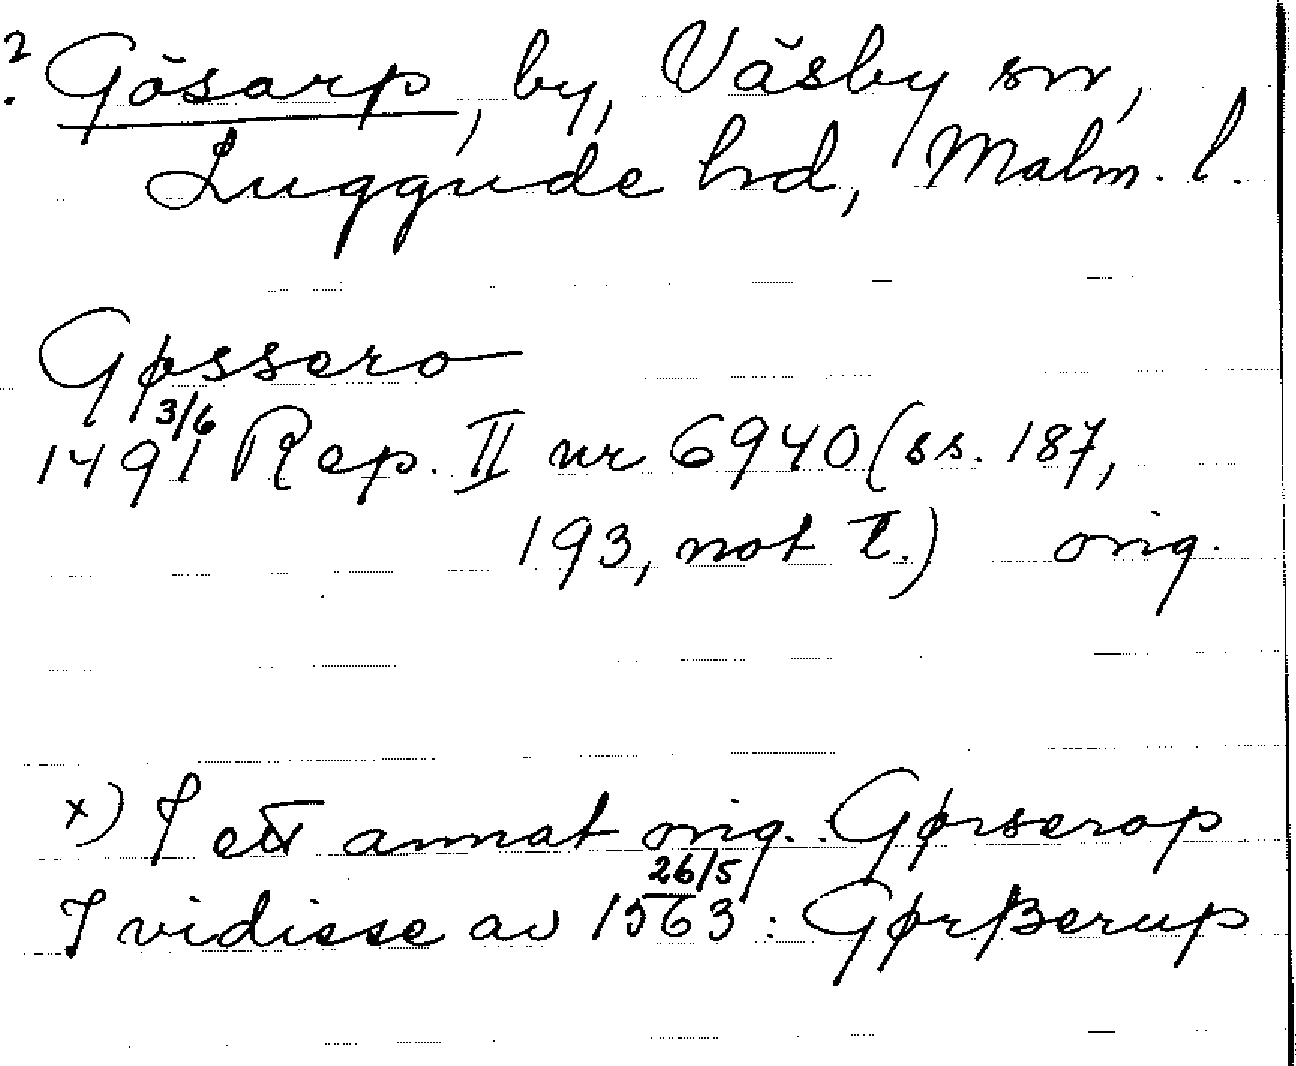 ? Gösarp, by, Väsby sn,
Luggude hd, Malm. l.
Gøssero
1491 3/6 Rep. II nr 6940 (ss. 187,
193, not 1.) orig.
x) I ett annat orig. : Gørserop
I vidisse av 1563 26/5 : Gørßerup